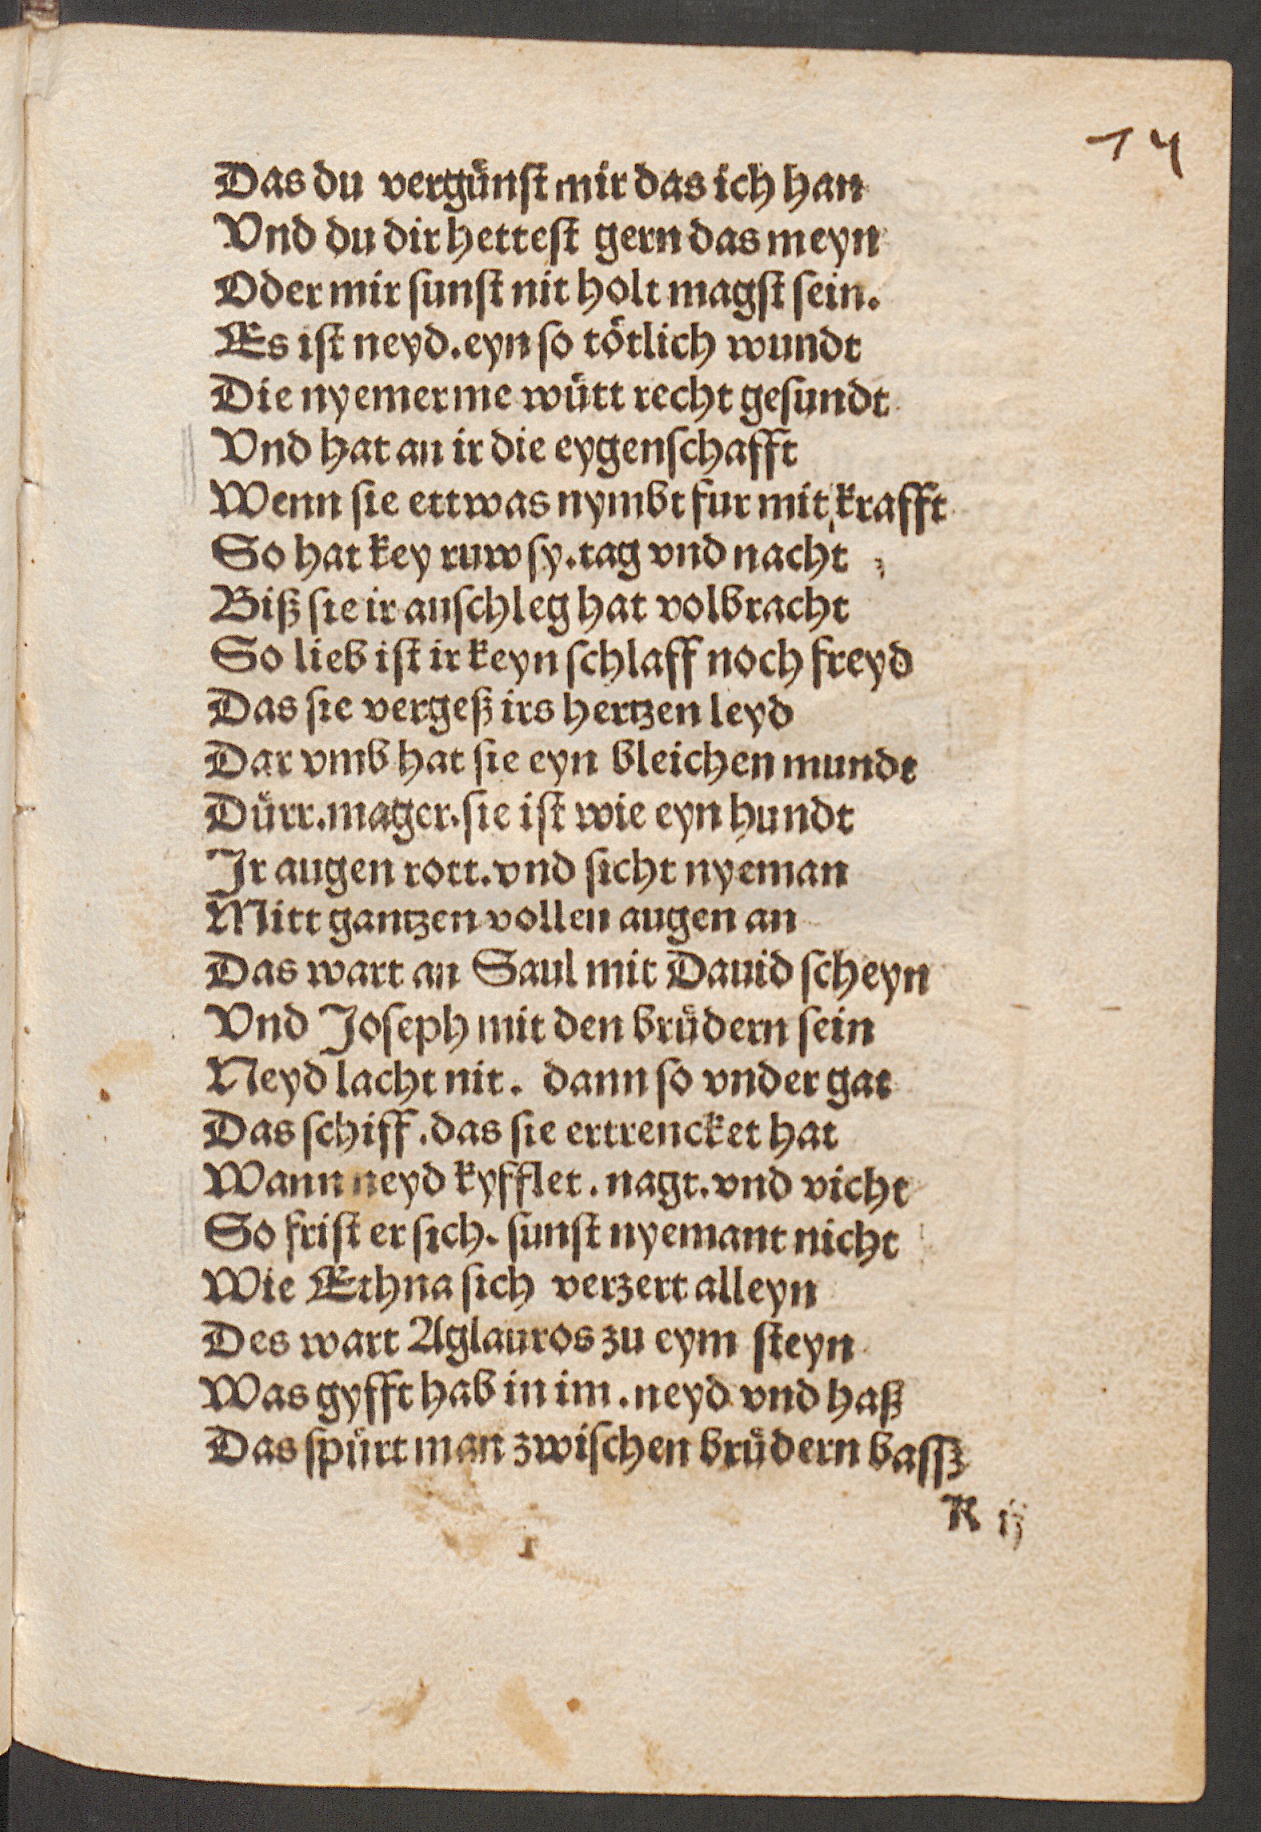 14
Das du vergünſt mir das ich han
Vnd du dir hetteſt gern das meyn
Oder mir ſunſt nit holt magſt ſein.
Es iſt neyd. eyn ſo tötlich wundt
Die nyemerme würt recht geſundt
Vnd hat an ir die eygenſchafft
Wenn ſie ettwas nymbt fur mit krafft
So hat key ruw ſy. tag vnd nacht
Biß ſie ir anſchleg hat volbracht
So lieb iſt ir keyn ſchlaff noch freyd
Das ſie vergeß irs hertzen leyd
Dar vmb hat ſie eyn bleichen mundt
Dürr. mager. ſie iſt wie eyn hundt
Jr augen rott. vnd ſicht nyeman
Mitt gantzen vollen augen an
Das wart an Saul mit Dauid ſcheyn
Vnd Joſeph mit den brüdern ſein
Neyd lacht nit. dann ſo vnder gat
Das ſchiff. das ſie ertrencket hat
Wann neyd kyfflet. nagt. vnd vicht
So friſt er ſich. ſunſt nyemant nicht
Wie Ethna ſich verzert alleyn
Des wart Aglauros zu eym ſteyn
Was gyfft hab in im. neyd vnd haß
Das ſpürt man zwiſchen brüdern baſſz
K ij